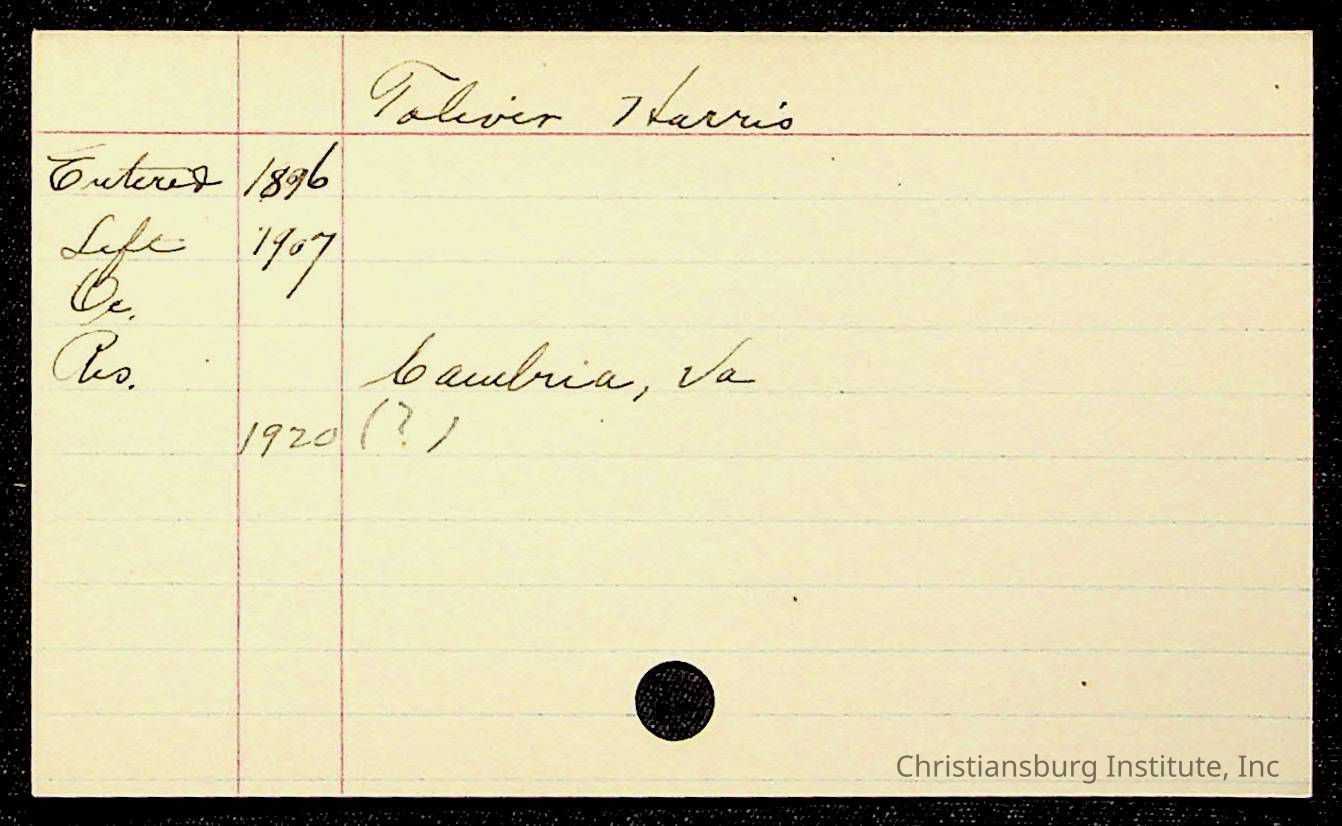 Toliver Harris
Entered 1896
Left 1907
Oc.
Res. Cambria, Va
1920 (?)
Christiansburg Institute, Inc